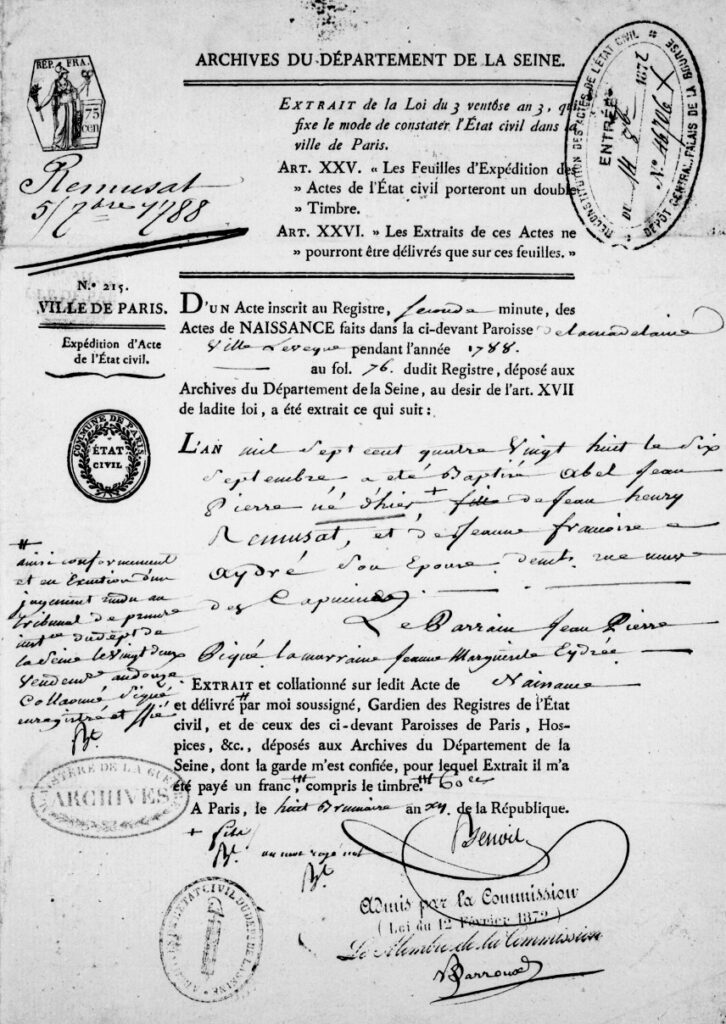 RÉP. FRA.
75
cen
Remusat
5/7bre 1788
ARCHIVES DU DÉPARTEMENT DE LA SEINE.
EXTRAIT de la Loi du 3 ventôse an 3, qui
fixe le mode de constater l'État civil dans la
ville de Paris.
ART. XXV. « Les Feuilles d'Expédition des
» Actes de l'État civil porteront un double
» Timbre.
ART. XXVI. » Les Extraits de ces Actes ne
» pourront être délivrés que sur ces feuilles. »
RECONSTITUTION DES ACTES DE L'ÉTAT CIVIL
ENTRÉE
DU 14 8bre 1872
No. 46706
DÉPÔT CENTRAL. PALAIS DE LA BOURSE
N.º 215.
VILLE DE PARIS.
Expédition d'Acte
de l'État civil.
COMMUNE DE PARIS.
ÉTAT
CIVIL
D'UN Acte inscrit au Registre, seconde minute, des
Actes de NAISSANCE faits dans la ci-devant Paroisse delamadelaine
Ville Leveque pendant l'année 1788.
au fol. 76. dudit Registre, déposé aux
Archives du Département de la Seine, au desir de l'art. XVII
de ladite loi, a été extrait ce qui suit :
L'AN mil Sept cent quatre Vingt huit le Six
Septembre a été Baptisé Abel Jean
Pierre né d'hier + fils de Jean henry
Remusat, et de Jeanne francoise
Aydré Son Epouse demt. rue neuve
des Capucines
Le Parrain Jean Pierre
Piqué la marraine Jeanne Marguerite Eydrée
#
ainsi conformement
et en Execution d'un
jugement rendu au
Tribunal de premre
instce dudépt de
la Seine le Vingt deux
Vendre an douze
Collationné Signé
enregistré et
Bt.
EXTRAIT et collationné sur ledit Acte de Naissance
et délivré par moi soussigné, Gardien des Registres de l'État
civil, et de ceux des ci-devant Paroisses de Paris, Hos-
pices, &c., déposés aux Archives du Département de la
Seine, dont la garde m'est confiée, pour lequel Extrait il m'a
été payé un franc, compris le timbre. 60 ces
A Paris, le huit Brumaire an XII de la République.
MINISTÈRE DE LA GUERRE
ARCHIVES
+ fils
Bt.
un mot rayé nul
Bt
Benoit
Admis par la Commission
( Loi du 12 Février 1872 )
Le Membre de la Commission
Barroux
ÉTAT CIVIL DU DÉP. DE LA SEINE